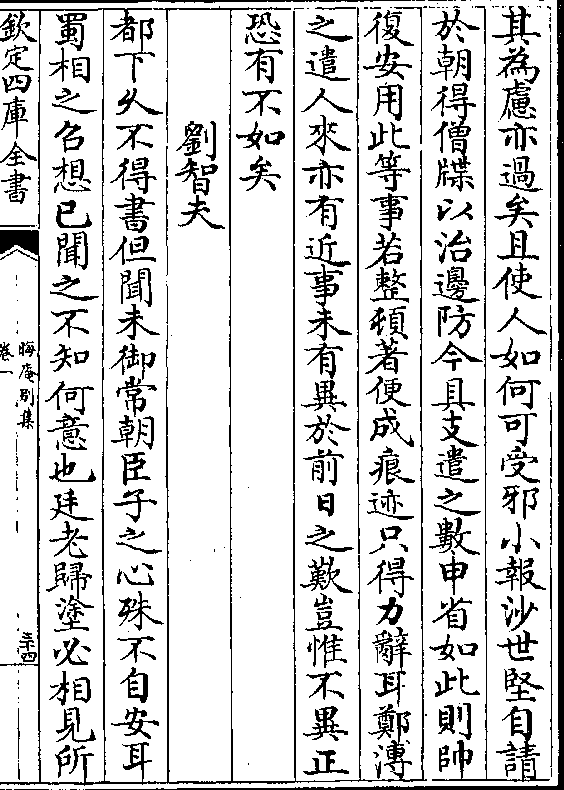 其為慮亦過矣且使人如何可受邪小報沙世堅自請
於朝得僧牒以治邊防今具支遣之數申省如此則帥
復安用此等事若整頓著便成痕迹只得力辭耳鄭溥
之遣人來亦有近事未有異於前日之歎豈惟不異正
恐有不如矣
劉智夫
都下久不得書但聞未御常朝臣子之心殊不自安耳
蜀相之召想已聞之不知何意也廷老歸塗必相見所
欽定四庫全書
晦庵別集
卷一
三十四